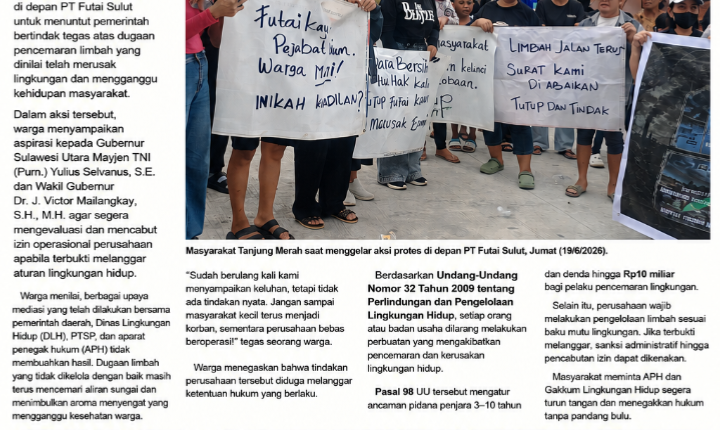 di depan PT Futai Sulut
untuk menuntut pemerintah
bertindak tegas atas dugaan
pencemaran limbah yang
dinilai telah merusak
lingkungan dan mengganggu
kehidupan masyarakat.
Dalam aksi tersebut,
warga menyampaikan
aspirasi kepada Gubernur
Sulawesi Utara Mayjen TNI
(Purn.) Yulius Selvanus, S.E.
dan Wakil Gubernur
Dr. J. Victor Mailangkay,
S.H., M.H. agar segera
mengevaluasi dan mencabut
izin operasional perusahaan
apabila terbukti melanggar
aturan lingkungan hidup.
Warga menilai, berbagai upaya
mediasi yang telah dilakukan bersama
pemerintah daerah, Dinas Lingkungan
Hidup (DLH), PTSP, dan aparat
penegak hukum (APH) tidak
membuahkan hasil. Dugaan limbah
yang tidak dikelola dengan baik masih
terus mencemari aliran sungai dan
menimbulkan aroma menyengat yang
mengganggu kesehatan warga.
Futai Kay
Pejabat
Warga
INIKAH KEADILAN?
BEATLES
ara Bersih
Hak
utup Futai
Merusak
asyarakat
n kelinci
obaan.
LIMBAH JALAN TERUS
SURAT KAMI
DI ABAIKAN
TUTUP DAN TINDAK
Masyarakat Tanjung Merah saat menggelar aksi protes di depan PT Futai Sulut, Jumat (19/6/2026).
"Sudah berulang kali kami
menyampaikan keluhan, tetapi tidak
ada tindakan nyata. Jangan sampai
masyarakat kecil terus menjadi
korban, sementara perusahaan bebas
beroperasi!" tegas seorang warga.
Warga menegaskan bahwa tindakan
perusahaan tersebut diduga melanggar
ketentuan hukum yang berlaku.
Berdasarkan Undang-Undang
Nomor 32 Tahun 2009 tentang
Perlindungan dan Pengelolaan
Lingkungan Hidup, setiap orang
atau badan usaha dilarang melakukan
perbuatan yang mengakibatkan
pencemaran dan kerusakan
lingkungan hidup.
Pasal 98 UU tersebut mengatur
ancaman pidana penjara 3–10 tahun
dan denda hingga Rp10 miliar
bagi pelaku pencemaran lingkungan.
Selain itu, perusahaan wajib
melakukan pengelolaan limbah sesuai
baku mutu lingkungan. Jika terbukti
melanggar, sanksi administratif hingga
pencabutan izin dapat dikenakan.
Masyarakat meminta APH dan
Gakkum Lingkungan Hidup segera
turun tangan dan menegakkan hukum
tanpa pandang bulu.